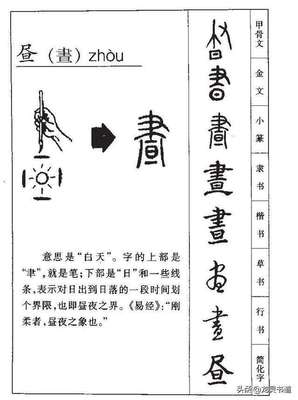 昼（晝）zhòu
晝
意思是“白天”。字的上部是
“聿”，就是笔；下部是“日”和一些线
条，表示对日出到日落的一段时间划
个界限，也即昼夜之界。《易经》：“刚
柔者，昼夜之象也。”
甲骨文
金文
小篆
隶书
楷书
草书
行书
简化字
晝
晝
晝
晝
晝
晝
晝
昼
头条@龙灵书道